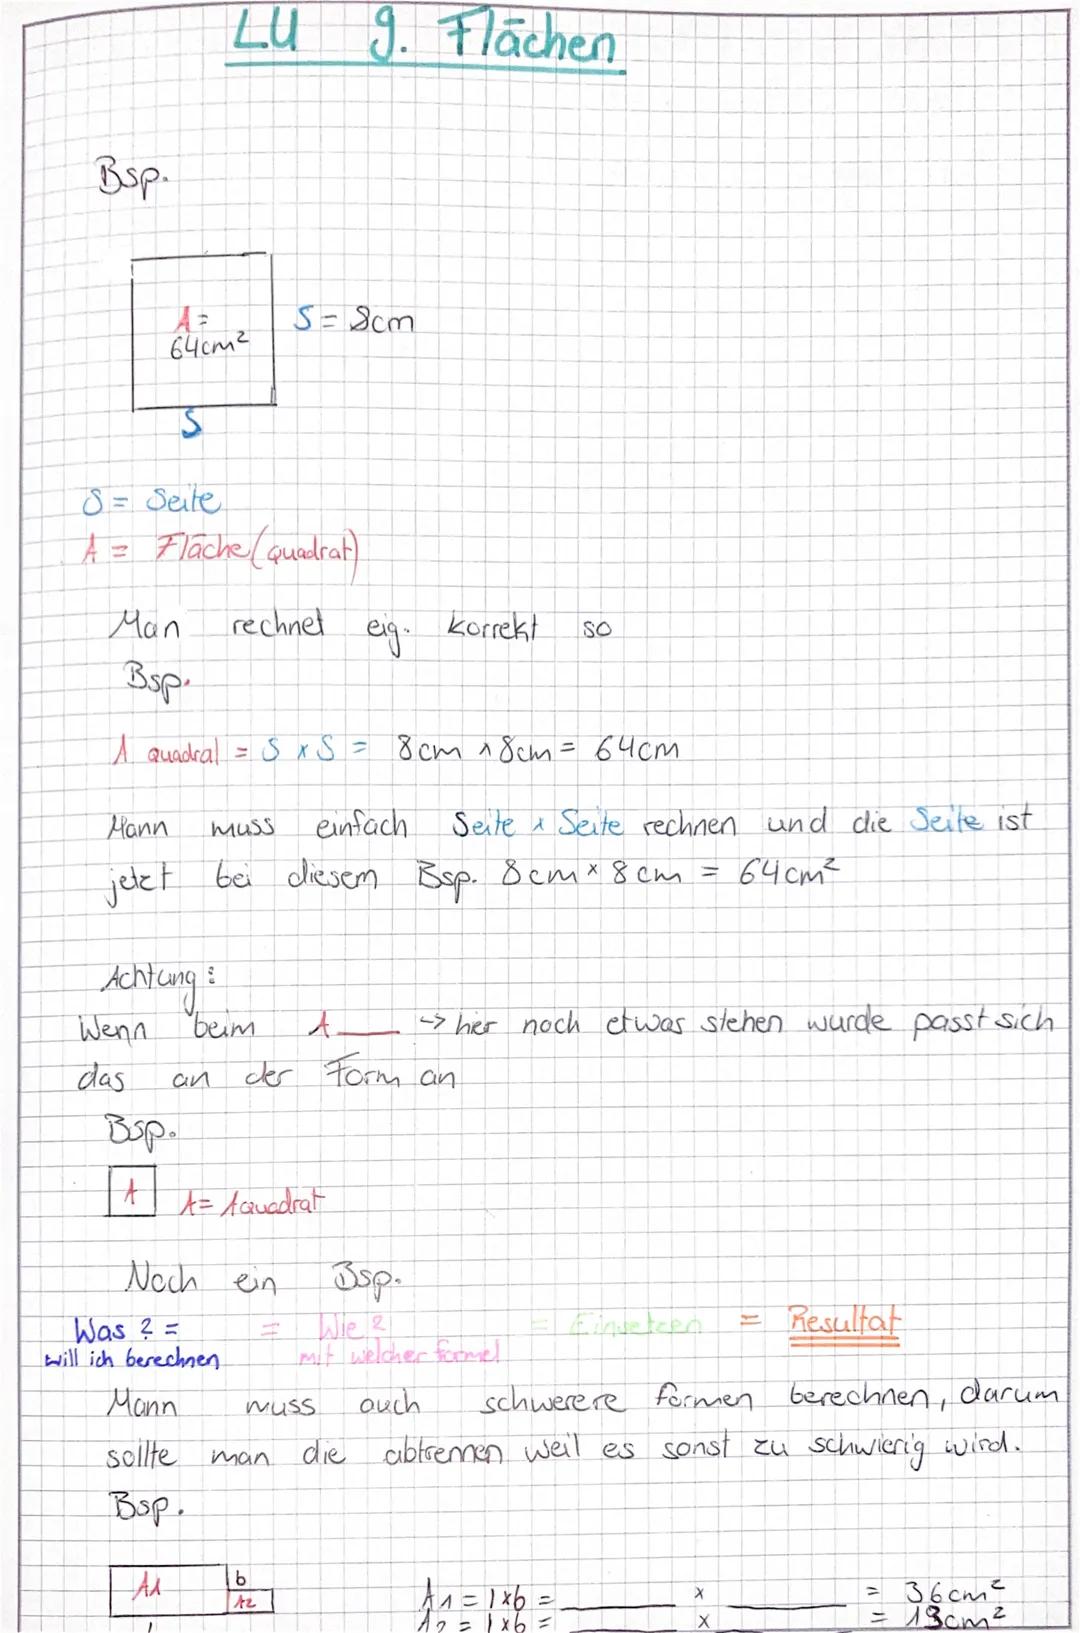 LU 9. Flächen
Bsp.
A =
64cm²
S = 8cm
S
S = Seite
A = Fläche (quadrat)
Man rechnet eig. korrekt so
Bsp.
A quadrat = S x S = 8cm x 8cm = 64cm
Mann muss einfach Seite x Seite rechnen und die Seite ist
jetzt bei diesem Bsp. 8cm x 8cm = 64cm²
Achtung:
Wenn beim A____ -> hier noch etwas stehen wurde passt sich
das an der Form an
Bsp.
A
A = Aquadrat
Noch ein Bsp.
Was? = = Wie? = Einsetzen = Resultat
will ich berechnen mit welcher formel
Mann muss auch schwerere formen berechnen, darum
sollte man die abtrennen weil es sonst zu schwierig wird.
Bsp.
A1 b
A2
l
A1 = l x b = ____ x ____ = 36cm²
A2 = l x b = ____ x ____ = 18cm²